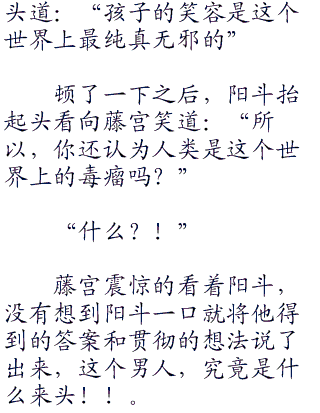 头道：“孩子的笑容是这个
世界上最纯真无邪的”
顿了一下之后，阳斗抬
起头看向藤宫笑道：“所
以，你还认为人类是这个世
界上的毒瘤吗？”
“什么？！”
藤宫震惊的看着阳斗，
没有想到阳斗一口就将他得
到的答案和贯彻的想法说了
出来，这个男人，究竟是什
么来头！！。